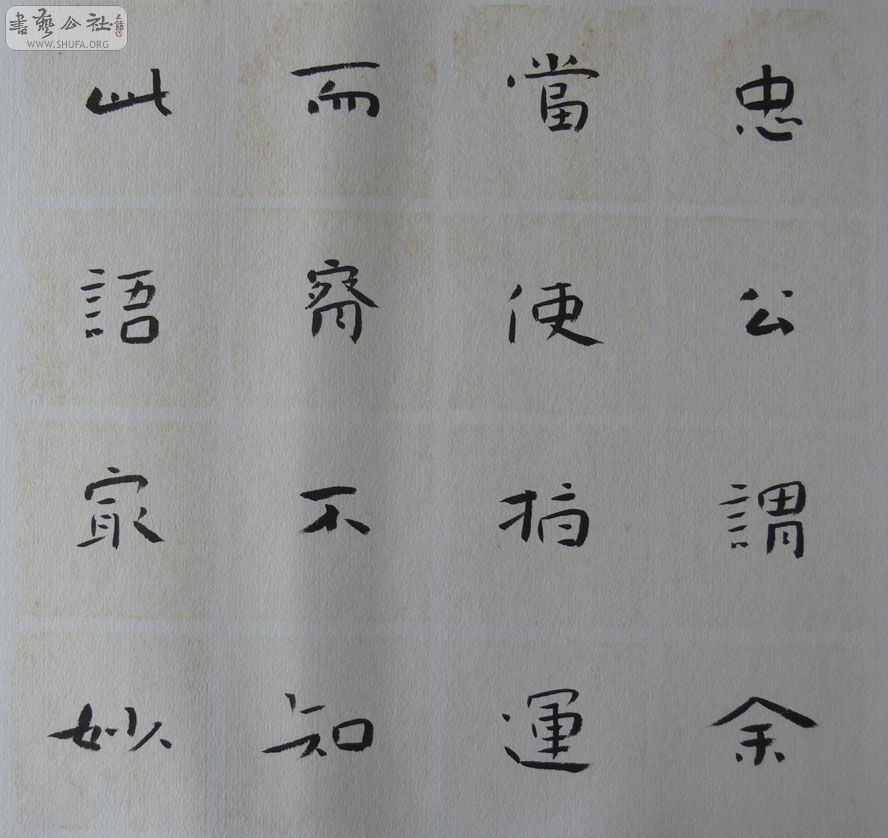 書藝公社
WWW.SHUFA.ORG
忠公謂余
當使指運
而腕不知
此語㝡妙